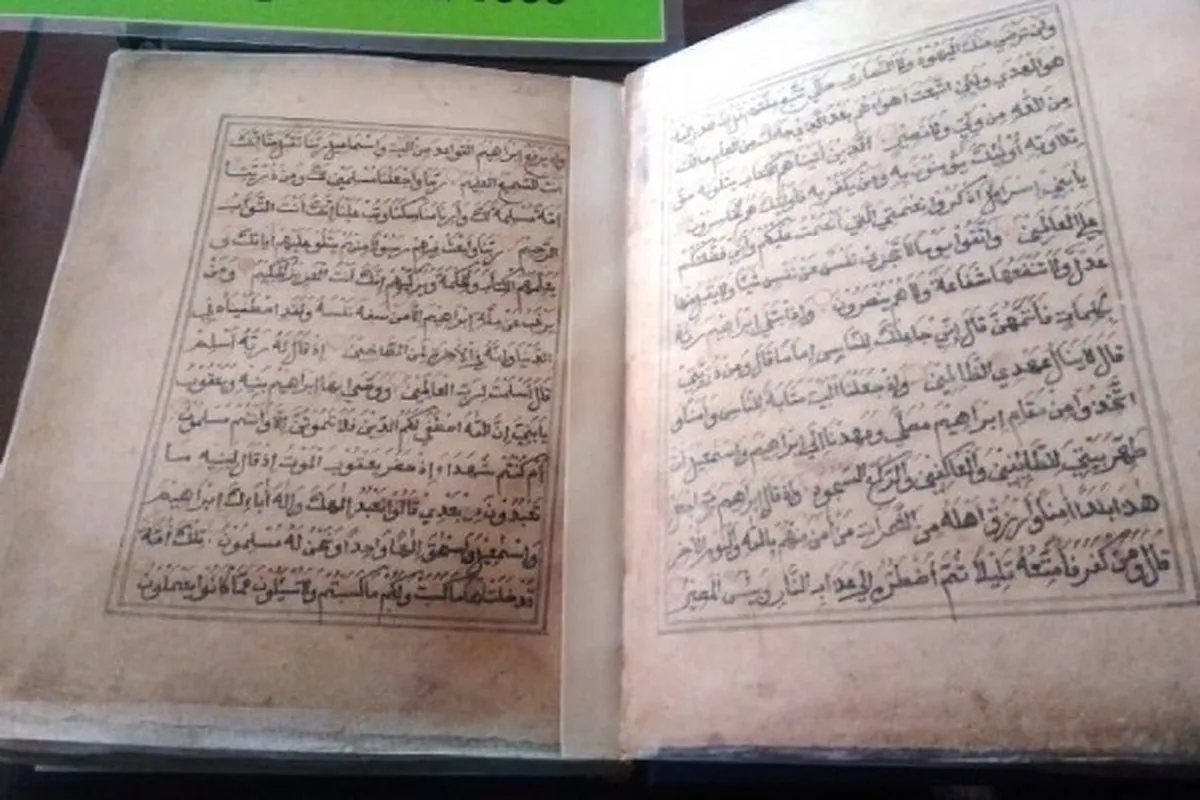 ولن ترضى عنك اليهود ولا النصارى حتى تتبع ملتهم قل إن هدى الله
هو الهدى ولئن اتبعت أهواءهم بعد الذي جاءك من العلم مالك
من الله من ولي ولا نصير الذين آتيناهم الكتاب يتلونه حق
تلاوته أولئك يؤمنون به ومن يكفر به فأولئك هم الخاسرون
يابني إسرائيل اذكروا نعمتي التي أنعمت عليكم وأني فضلتكم
على العالمين واتقوا يوما لا تجزي نفس عن نفس شيئا ولا يقبل منها
عدل ولا تنفعها شفاعة ولا هم ينصرون وإذ ابتلى إبراهيم ربه
بكلمات فأتمهن قال إني جاعلك للناس إماما قال ومن ذريتي
قال لا ينال عهدي الظالمين وإذ جعلنا البيت مثابة للناس وأمنا و
اتخذوا من مقام إبراهيم مصلى وعهدنا إلى إبراهيم وإسمعيل أن
طهرا بيتي للطائفين والعاكفين والركع السجود وإذ قال إبراهيم رب اجعل
هذا بلدا آمنا وارزق أهله من الثمرات من آمن منهم بالله واليوم الآخر
قال ومن كفر فأمتعه قليلا ثم أضطره إلى عذاب النار وبئس المصير
وإذ يرفع إبراهيم القواعد من البيت وإسماعيل ربنا تقبل منا إنك
أنت السميع العليم ربنا واجعلنا مسلمين لك ومن ذريتنا
أمة مسلمة لك وأرنا مناسكنا وتب علينا إنك أنت التواب
الرحيم ربنا وابعث فيهم رسولا منهم يتلو عليهم آياتك و
يعلمهم الكتاب والحكمة ويزكيهم إنك أنت العزيز الحكيم ومن
يرغب عن ملة إبراهيم إلا من سفه نفسه ولقد اصطفيناه في
الدنيا وإنه في الآخرة لمن الصالحين إذ قال له ربه أسلم
قال أسلمت لرب العالمين ووصى بها إبراهيم بنيه ويعقوب
يابني إن الله اصطفى لكم الدين فلا تموتن إلا وأنتم مسلمون
أم كنتم شهداء إذ حضر يعقوب الموت إذ قال لبنيه ما
تعبدون من بعدي قالوا نعبد إلهك وإله آباءك إبراهيم
وإسمعيل وإسحق إلها واحدا ونحن له مسلمون تلك أمة
قد خلت لها ما كسبت ولكم ما كسبتم ولا تسئلون عما كانوا يعملون